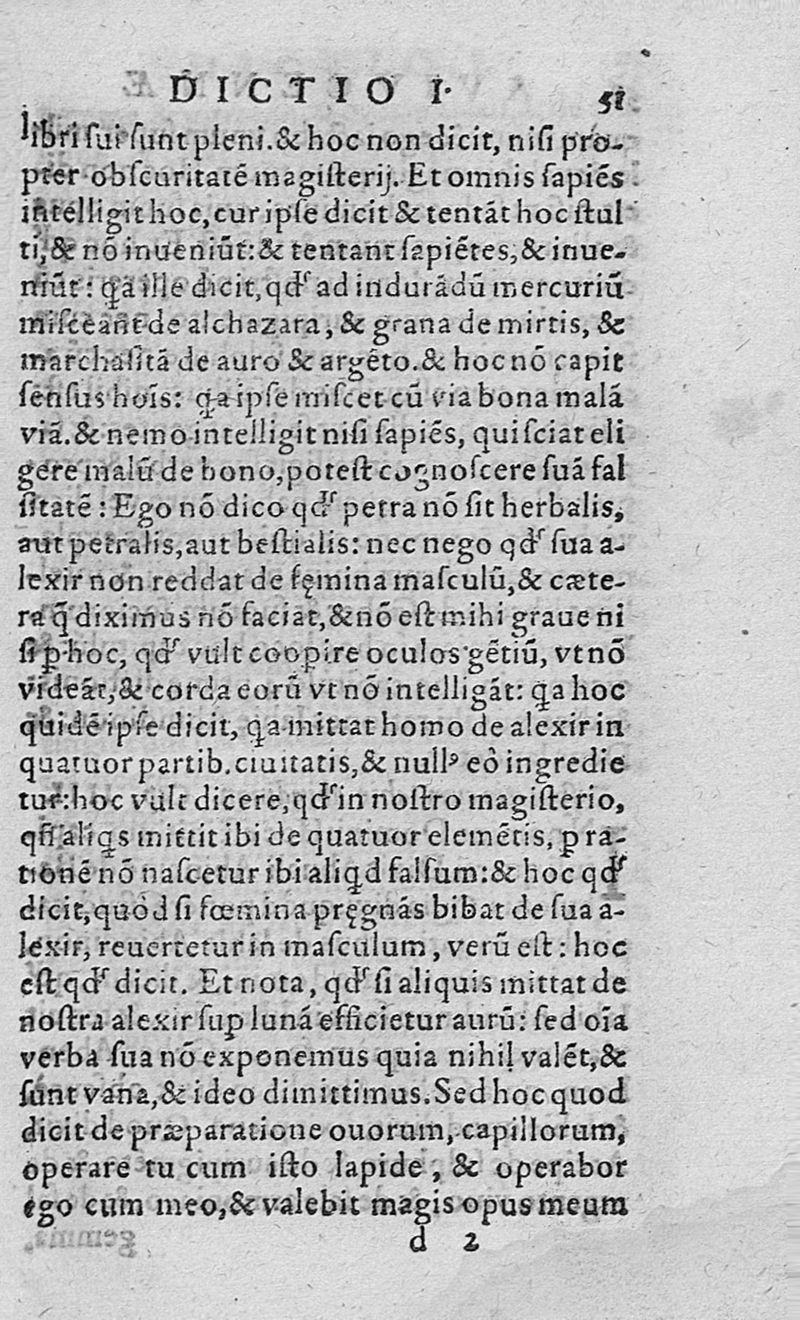 DICTIO I. 51
libri sui sunt pleni.& hoc non dicit, nisi pro-
pter obscuritatē magisterij. Et omnis sapiēs
intelligit hoc, cur ipse dicit & tentāt hoc stul
ti, & nō inueniūt: & tentant sapiētes, & inue-
niūt: ꝗa ille dicit, qđ ad indurādū mercuriū
misceant de alchazara, & grana de mirtis, &
marchasitā de auro & argēto.& hoc nō capit
sensus hoīs: ꝗa ipse miscet cū via bona malā
viā.& nemo intelligit nisi sapiēs, qui sciat eli
gere malū de bono, potest cognoscere suā fal
sitatē: Ego nō dico qđ petra nō sit herbalis,
aut petralis, aut bestialis: nec nego qđ sua a-
lexir non reddat de fęmina masculū, & cæte-
ra q̄ diximus nō faciat, & nō est mihi graue ni
si ꝑ hoc, qđ vult coopire oculos gētiū, vt nō
videāt, & corda eorū vt nō intelligāt: ꝗa hoc
quidē ipse dicit, ꝗa mittat homo de alexir in
quatuor partib. ciuitatis, & nullꝰ eò ingredie
tur: hoc vult dicere, qđ in nostro magisterio,
qñ aliꝗs mittit ibi de quatuor elemētis, ꝑ ra-
tionē nō nascetur ibi aliꝗd falsum: & hoc qđ
dicit, quòd si fœmina pręgnās bibat de sua a-
lexir, reuertetur in masculum, verū est: hoc
est qđ dicit. Et nota, qđ si aliquis mittat de
nostra alexir suꝑ lunā efficietur aurū: sed oīa
verba sua nō exponemus quia nihil valēt, &
sunt vana, & ideo dimittimus. Sed hoc quod
dicit de præparatione ouorum, capillorum,
operare tu cum isto lapide, & operabor
ego cum meo, & valebit magis opus meum
d 2